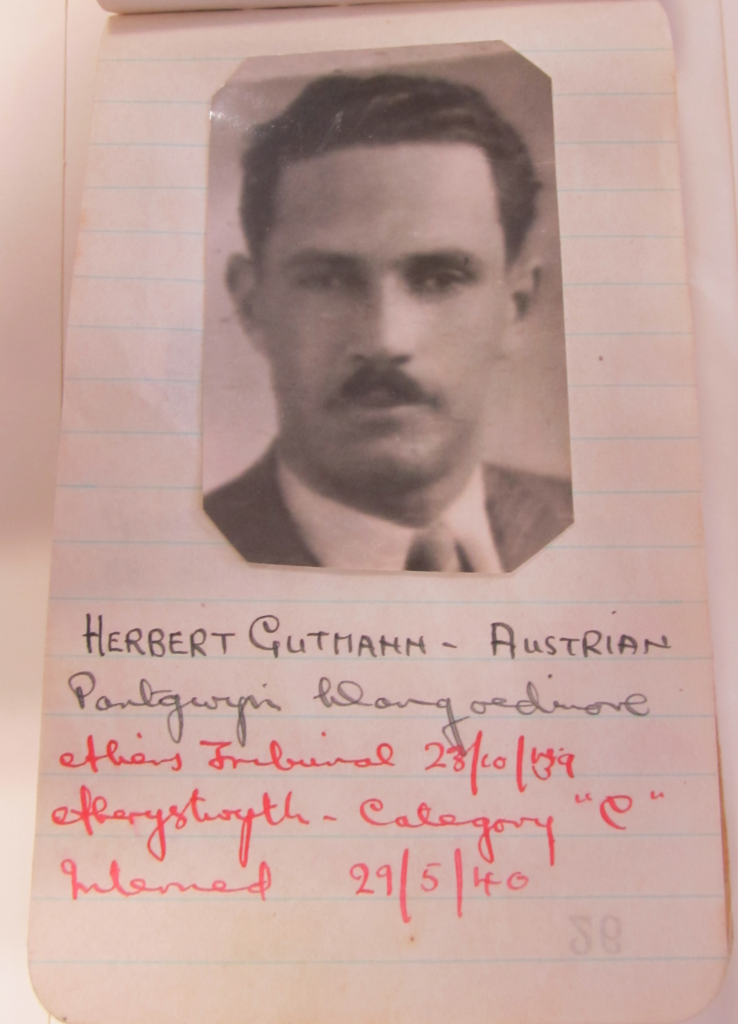 HERBERT GUTMANN - AUSTRIAN
Pantgwyn Llangoedmore
Aliens Tribunal 23/10/39
Aberystwyth - Category "C"
Interned 29/5/40
26